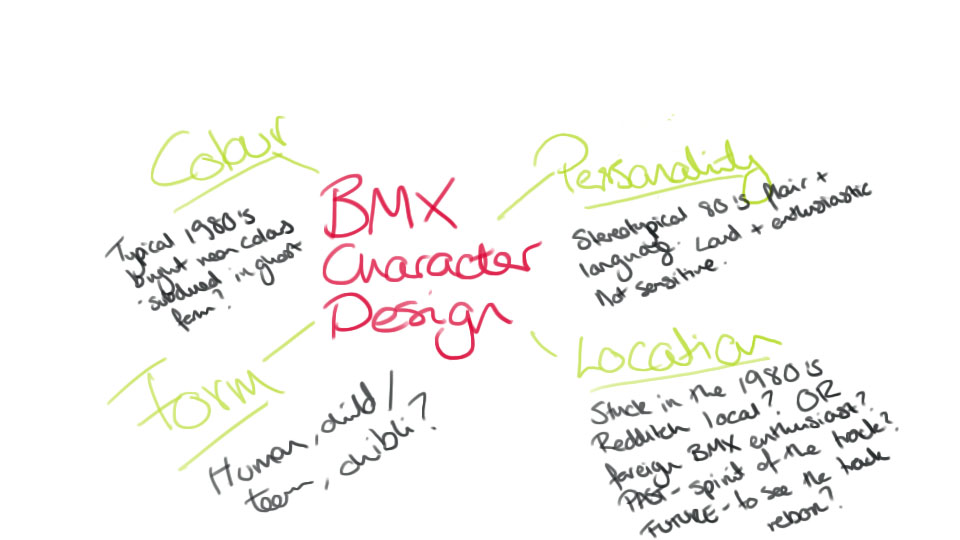 BMX
Character
Design
Colour
Typical 1980's
bright neon colours
- subdued in ghost
form?
Personality
Stereotypical 80's flair +
language. Loud + enthusiastic
Not sensitive.
Form
Human, child /
teen, chibli?
Location
Stuck in the 1980's
Redditch local? OR
foreign BMX enthusiast?
PAST - spirit of the track?
FUTURE - to see the track
reborn?